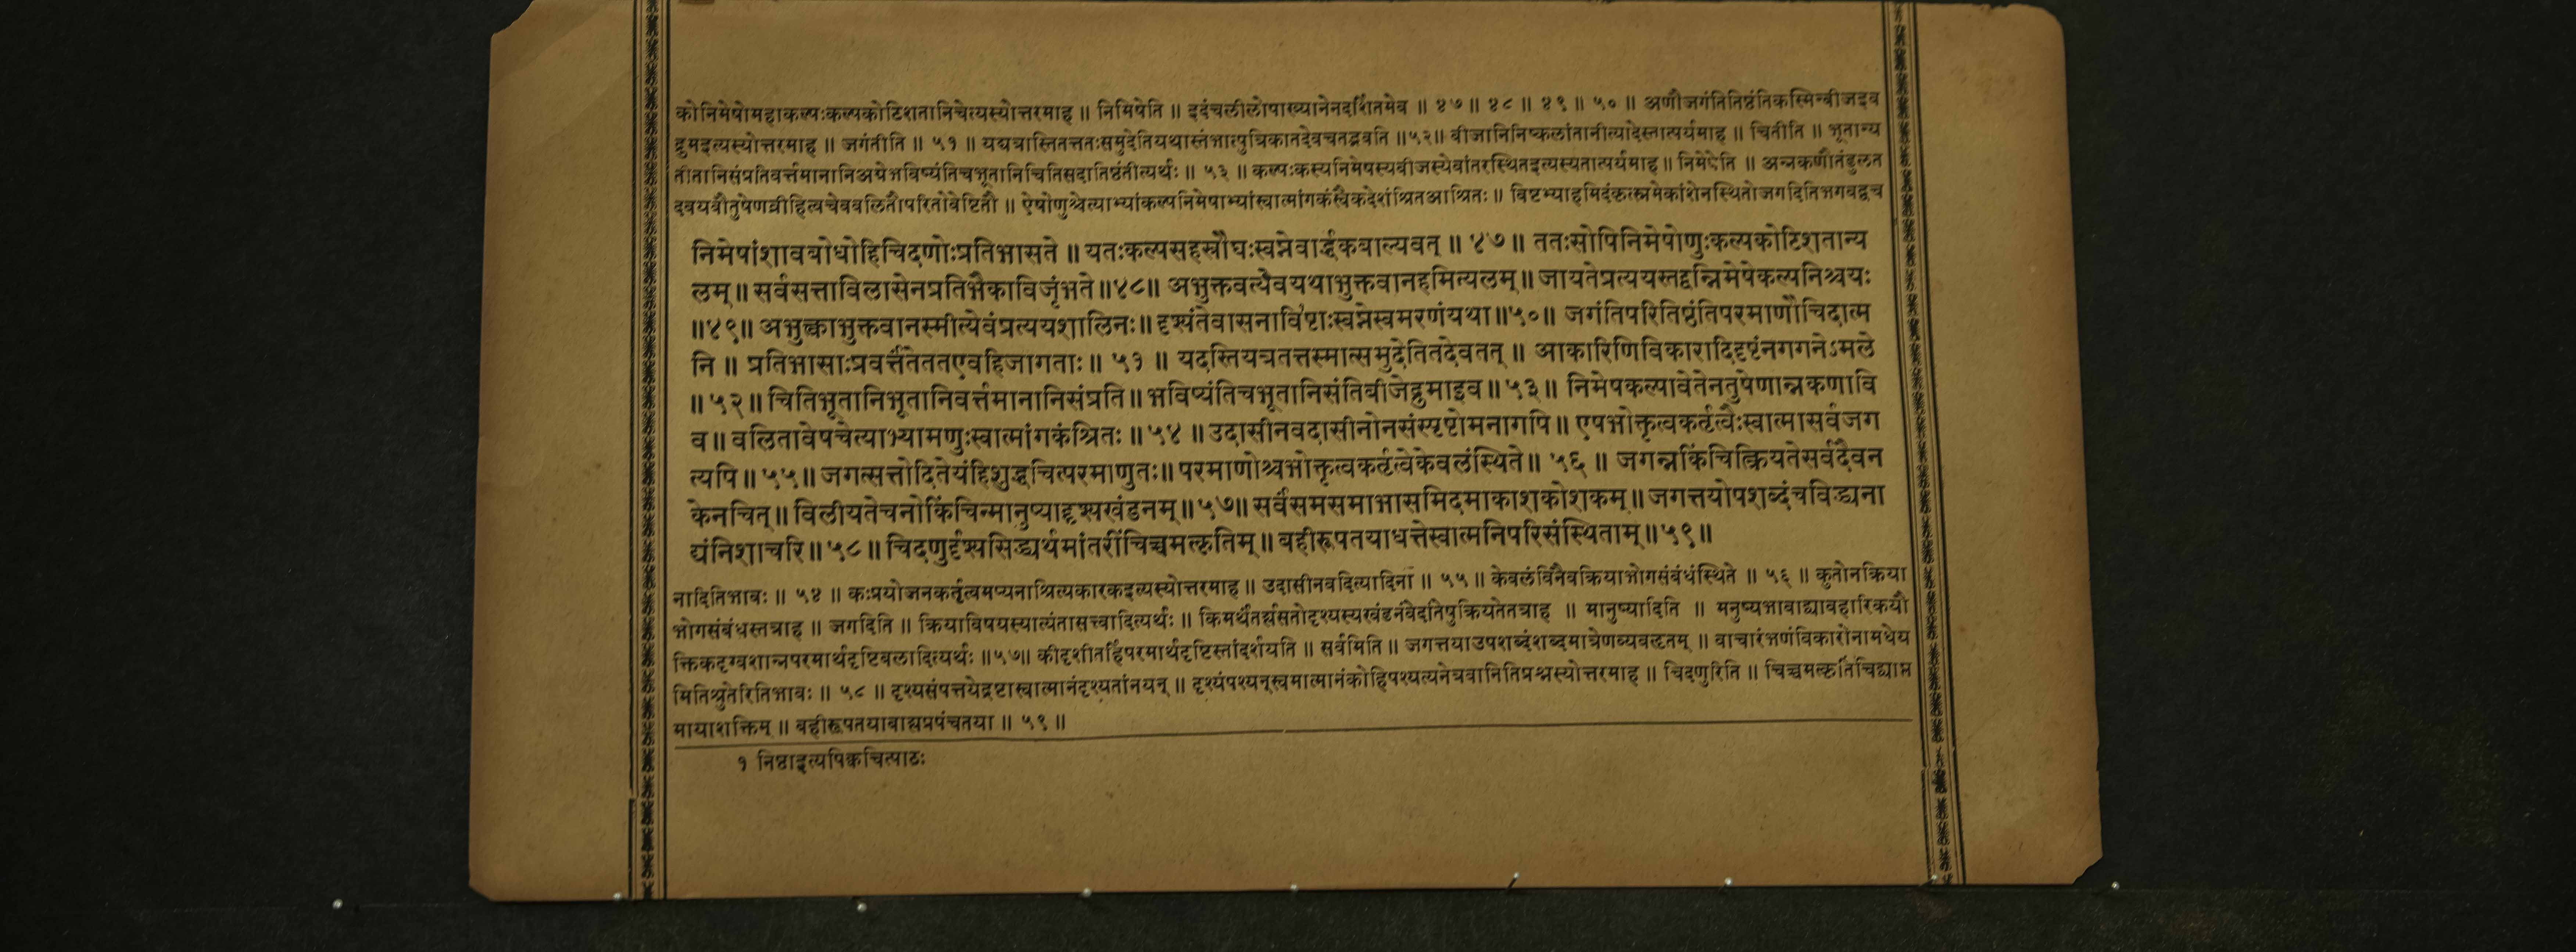 कोनिमेषोमहाकल्पःकल्पकोटिशतानिचेत्यस्योत्तरमाह ॥ निमिषेति ॥ इदंचलीलोपाख्यानेनदर्शितमेव ॥ ४७ ॥ ४८ ॥ ४९ ॥ ५० ॥ अणौजगंतितिष्ठंतिकस्मिन्बीजइव
द्रुमइत्यस्योत्तरमाह ॥ जगंतीति ॥ ५१ ॥ यद्यत्रास्तितत्ततःसमुदेतियथास्तंभात्पुत्रिकातदेवचतद्भवति ॥५२॥ बीजानिनिष्कलांतानीत्यादेस्तात्पर्यमाह ॥ चितीति ॥ भूतान्य
तीतानिसंप्रतिवर्त्तमानानिअग्रेभविष्यंतिचभूतानिचितिसदातिष्ठंतीत्यर्थः ॥ ५३ ॥ कल्पःकस्यनिमेषस्यबीजस्येवांतरस्थितइत्यस्यतात्पर्यमाह ॥ निमेषेति ॥ अन्नकणौतंडुलत
दवयवौतुषेणव्रीहित्वचेववलितौपरितोवेष्टितौ ॥ ऐषोणुश्चेत्याभ्यांकल्पनिमेषाभ्यांस्वात्मांगकंस्वैकदेशंश्रितआश्रितः ॥ विष्टभ्याहमिदंकृत्स्नमेकांशेनस्थितोजगदितिभगवद्वच
निमेषांशावबोधोहिचिदणोःप्रतिभासते ॥ यतःकल्पसहस्रौघःस्वप्नेवार्द्धकबाल्यवत् ॥ ४७ ॥ ततःसोपिनिमेषोणुःकल्पकोटिशतान्य
लम् ॥ सर्वसत्ताविलासेनप्रतिभैकाविजृंभते ॥४८॥ अभुक्तवत्यैवयथाभुक्तवानहमित्यलम् ॥ जायतेप्रत्ययस्तद्वन्निमेषेकल्पनिश्चयः
॥४९॥ अभुक्त्वाभुक्तवानस्मीत्येवंप्रत्ययशालिनः ॥ दृश्यंतेवासनावि१ष्टाःस्वप्नेस्वमरणंयथा ॥५०॥ जगंतिपरितिष्ठंतिपरमाणौचिदात्म
नि ॥ प्रतिभासाःप्रवर्त्तंतेततएवहिजागताः ॥ ५१ ॥ यदस्तियत्रतत्तस्मात्समुदेतितदेवतत् ॥ आकारिणिविकारादिदृष्टंनगगनेऽमले
॥ ५२ ॥ चितिभूतानिभूतानिवर्त्तमानानिसंप्रति ॥ भविष्यंतिचभूतानिसंतिबीजेद्रुमाइव ॥ ५३ ॥ निमेषकल्पावेतेनतुषेणान्नकणावि
व ॥ वलितावेषचेत्याभ्यामणुःस्वात्मांगकंश्रितः ॥ ५४ ॥ उदासीनवदासीनोनसंस्पृष्टोमनागपि ॥ एषभोक्तृत्वकर्तृत्वैःस्वात्मासर्वजग
त्यपि ॥ ५५ ॥ जगत्सत्तोदितेयंहिशुद्धचित्परमाणुतः ॥ परमाणोश्चभोक्तृत्वकर्तृत्वेकेवलंस्थिते ॥ ५६ ॥ जगन्नकिंचित्क्रियतेसर्वदैवन
केनचित् ॥ विलीयतेचनोकिंचिन्मानुष्याद्दृश्यखंडनम् ॥ ५७ ॥ सर्वंसमसमाभासमिदमाकाशकोशकम् ॥ जगत्तयोपशब्दंचविद्ध्यना
द्यंनिशाचरि ॥ ५८ ॥ चिदणुर्दृश्यसिद्ध्यर्थमांतरींचिच्चमत्कृतिम् ॥ बहीरूपतयाधत्तेस्वात्मनिपरिसंस्थिताम् ॥ ५९ ॥
नादितिभावः ॥ ५४ ॥ कःप्रयोजनकर्तृत्वमप्यनाश्रित्यकारकइत्यस्योत्तरमाह ॥ उदासीनवदित्यादिना ॥ ५५ ॥ केवलंविनैवक्रियाभोगसंबंधंस्थिते ॥ ५६ ॥ कुतोनक्रिया
भोगसंबंधस्तत्राह ॥ जगदिति ॥ क्रियाविषयस्यात्यंतासत्त्वादित्यर्थः ॥ किमर्थंतर्ह्यसतोदृश्यस्यखंडनंवेदांतेषुक्रियतेतत्राह ॥ मानुष्यादिति ॥ मनुष्यभावाद्व्यावहारिकयौ
क्तिकदृग्वशान्नपरमार्थदृष्टिबलादित्यर्थः ॥५७॥ कीदृशीतर्हिपरमार्थदृष्टिस्तांदर्शयति ॥ सर्वमिति ॥ जगत्तयाउपशब्दंशब्दमात्रेणव्यवहृतम् ॥ वाचारंभणंविकारोनामधेय
मितिश्रुतेरितिभावः ॥ ५८ ॥ दृश्यसंपत्तयेद्रष्टास्वात्मानंदृश्यतांनयन् ॥ दृश्यंपश्यन्स्वमात्मानंकोहिपश्यत्यनेत्रवानितिप्रश्नस्योत्तरमाह ॥ चिदणुरिति ॥ चिच्चमत्कृतिंचिद्व्याप्त
मायाशक्तिम् ॥ बहीरूपतयाबाह्यप्रपंचतया ॥ ५९ ॥
१ निष्ठाइत्यपिक्वचित्पाठः